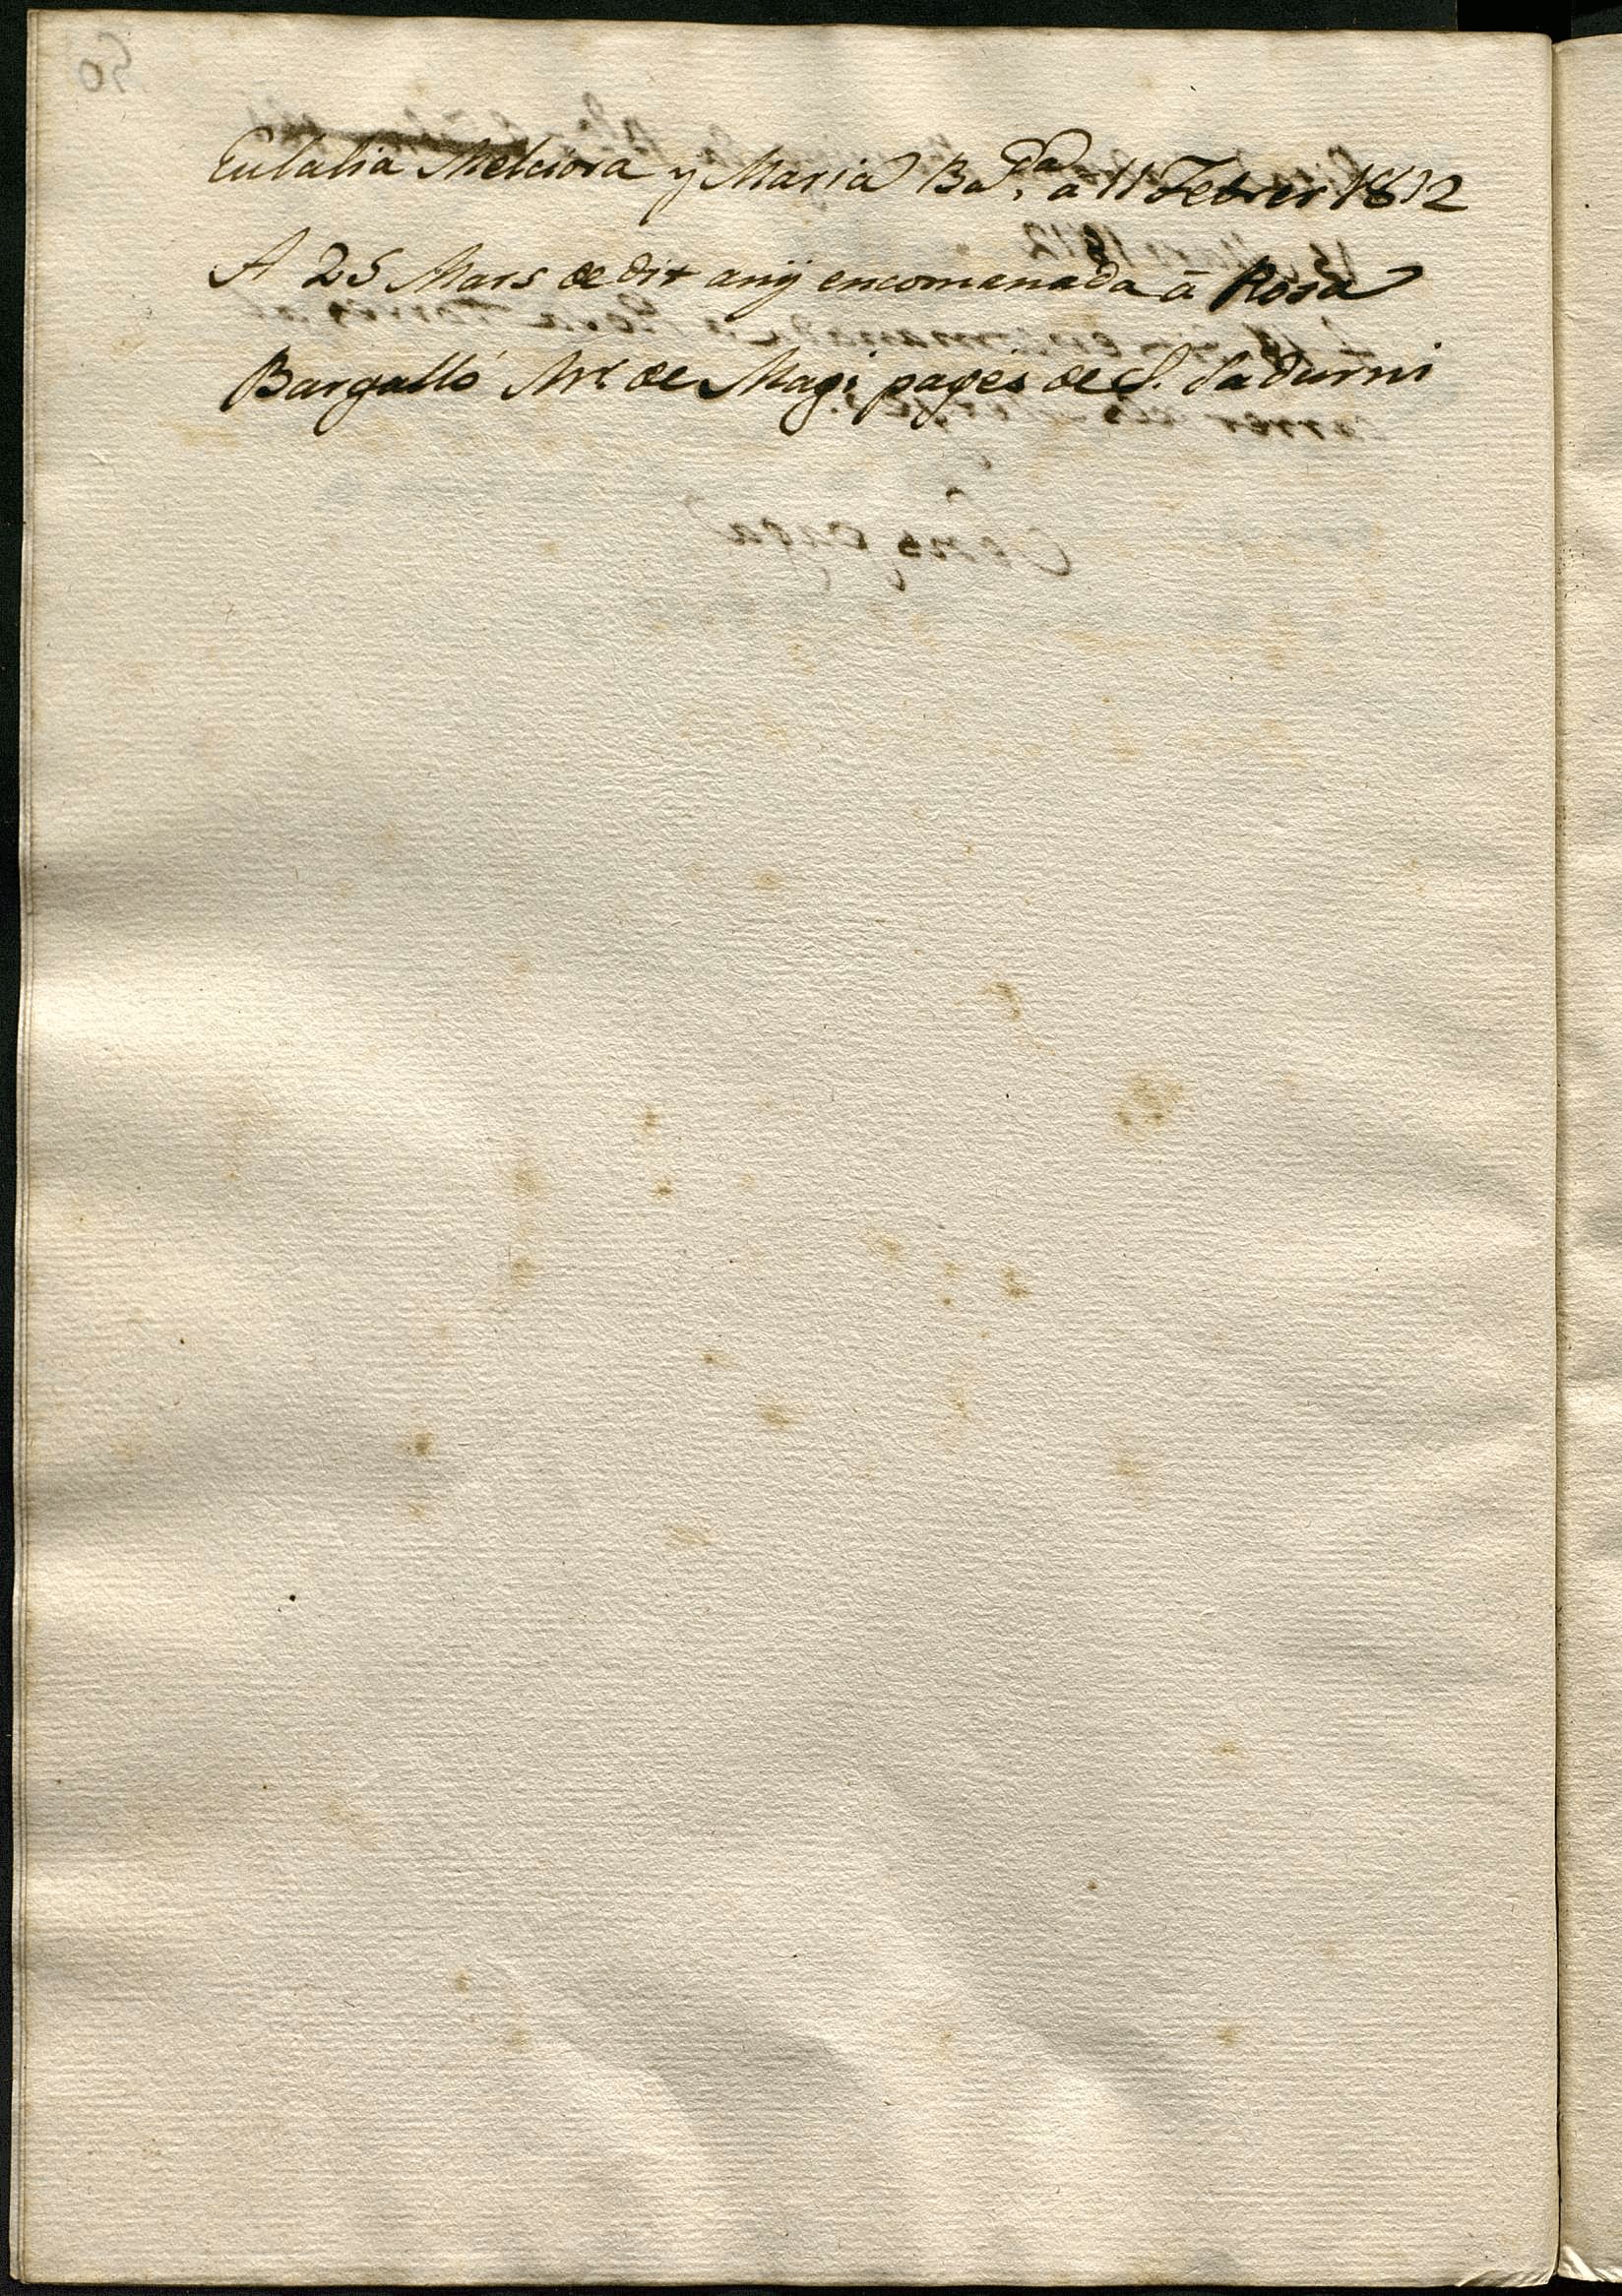 Eulalia Melciora y Maria Ba.da a 11 Febrer 1812
A 25 Mars de dit anÿ encomanada á Rosa
Bargalló Mr de Magi pages de S. Sadurni